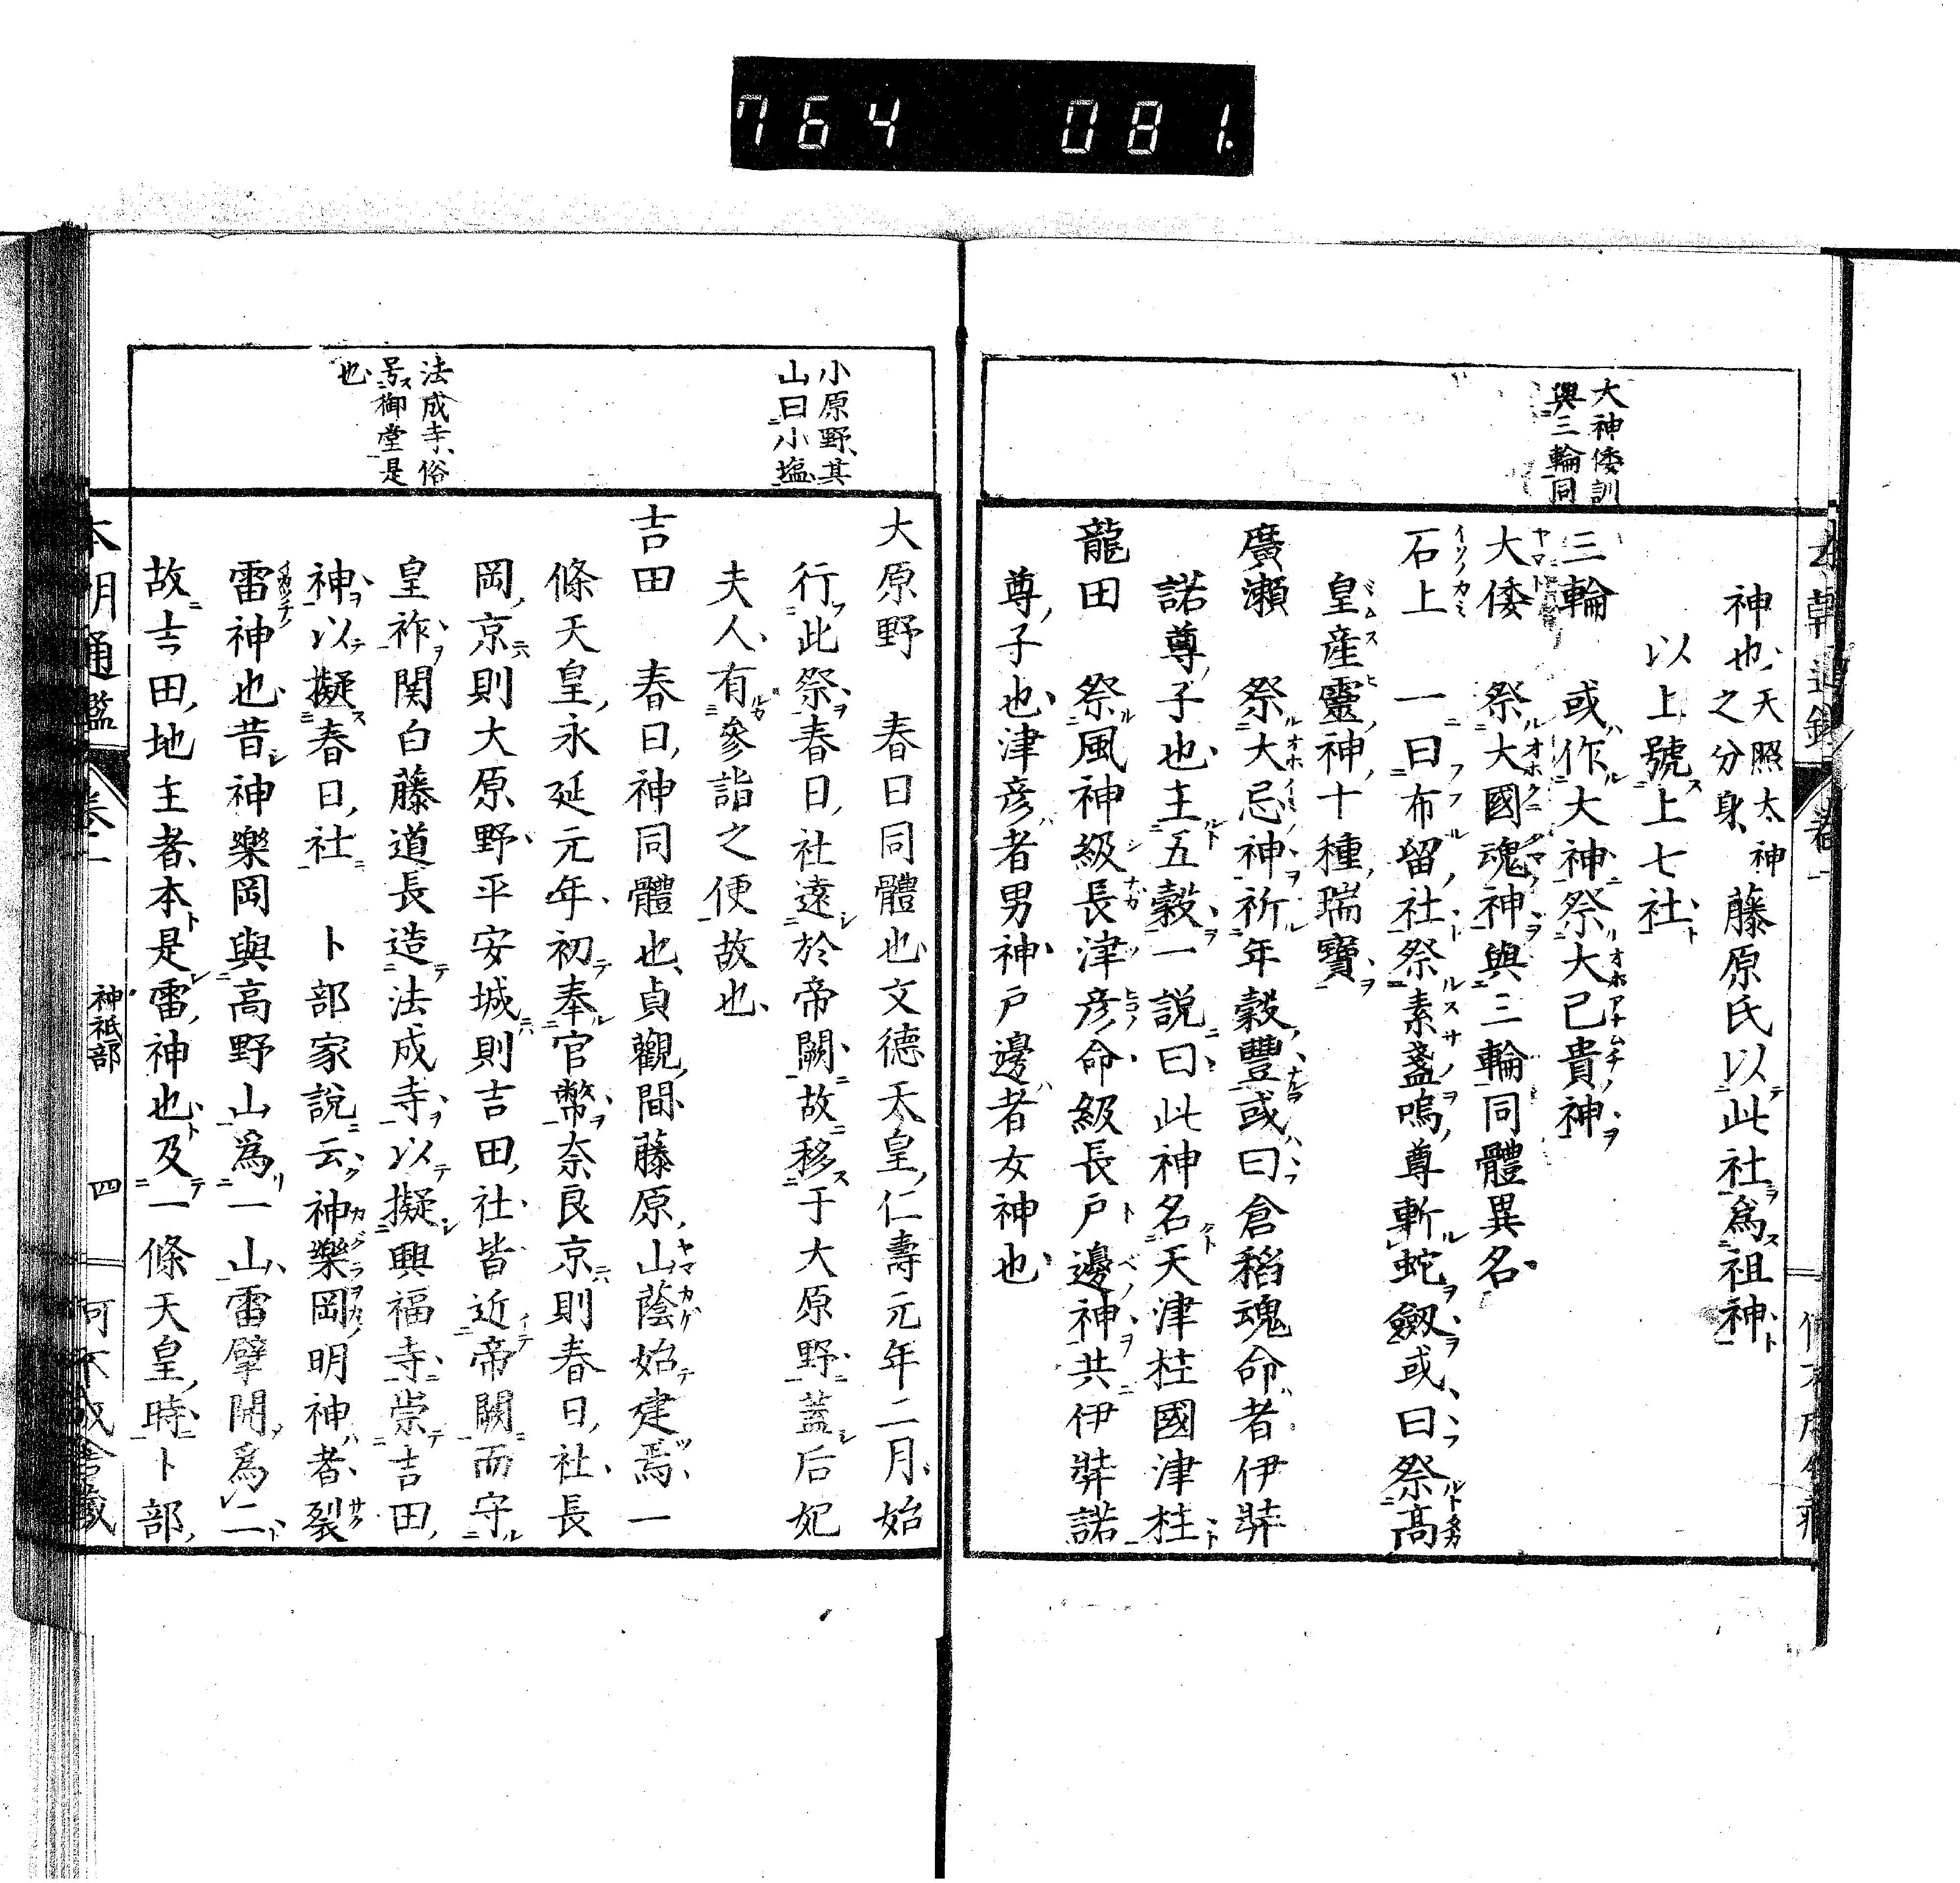 764 081.
大神倭訓
與三輪同
神也天照太神
之分身藤原氏以此社爲祖神
以上號上七社
三輪 或作大神祭大己貴神
大倭 祭大國魂神與三輪同體異名
石上 一曰布留社祭素盞嗚尊斬蛇劔或曰祭高
皇產靈神十種瑞寶
廣瀬 祭大忌神祈年穀豐或曰倉稻魂命者伊弉
諾尊子也主五穀一説曰此神名天津桂國津桂
龍田 祭風神級長津彦命級長戸邊神共伊弉諾
尊子也津彦者男神戸邊者女神也
小原野其
山曰小塩
法成寺俗
号御堂是
也
大原野 春日同體也文德天皇仁壽元年二月始
行此祭春日社遠於帝闕故移于大原野蓋后妃
夫人有參詣之便故也
吉田 春日神同體也貞觀間藤原山蔭始建焉一
條天皇永延元年初奉官幣奈良京則春日社長
岡京則大原野平安城則吉田社皆近帝闕而守
皇祚関白藤道長造法成寺以擬興福寺崇吉田
神以擬春日社 卜部家説云神樂岡明神者裂
雷神也昔神樂岡與高野山爲一山雷擘開爲二
故吉田地主者本是雷神也及一條天皇時卜部
本朝通鑑 卷一 神祇部 四